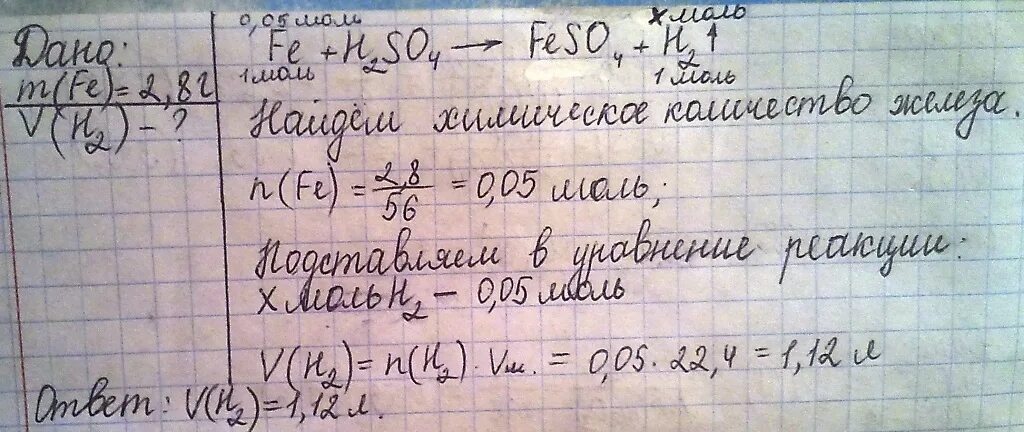 Дано:
m(Fe)=2,8г
V(H₂)-?
0,05 моль x моль
Fe + H₂SO₄ → FeSO₄ + H₂↑
1 моль 1 моль
Найдём химическое количество железа.
n(Fe) = 2,8/56 = 0,05 моль;
Подставляем в уравнение реакции:
x моль H₂ - 0,05 моль
V(H₂) = n(H₂) · Vм. = 0,05 · 22,4 = 1,12 л
Ответ: V(H₂)=1,12 л.